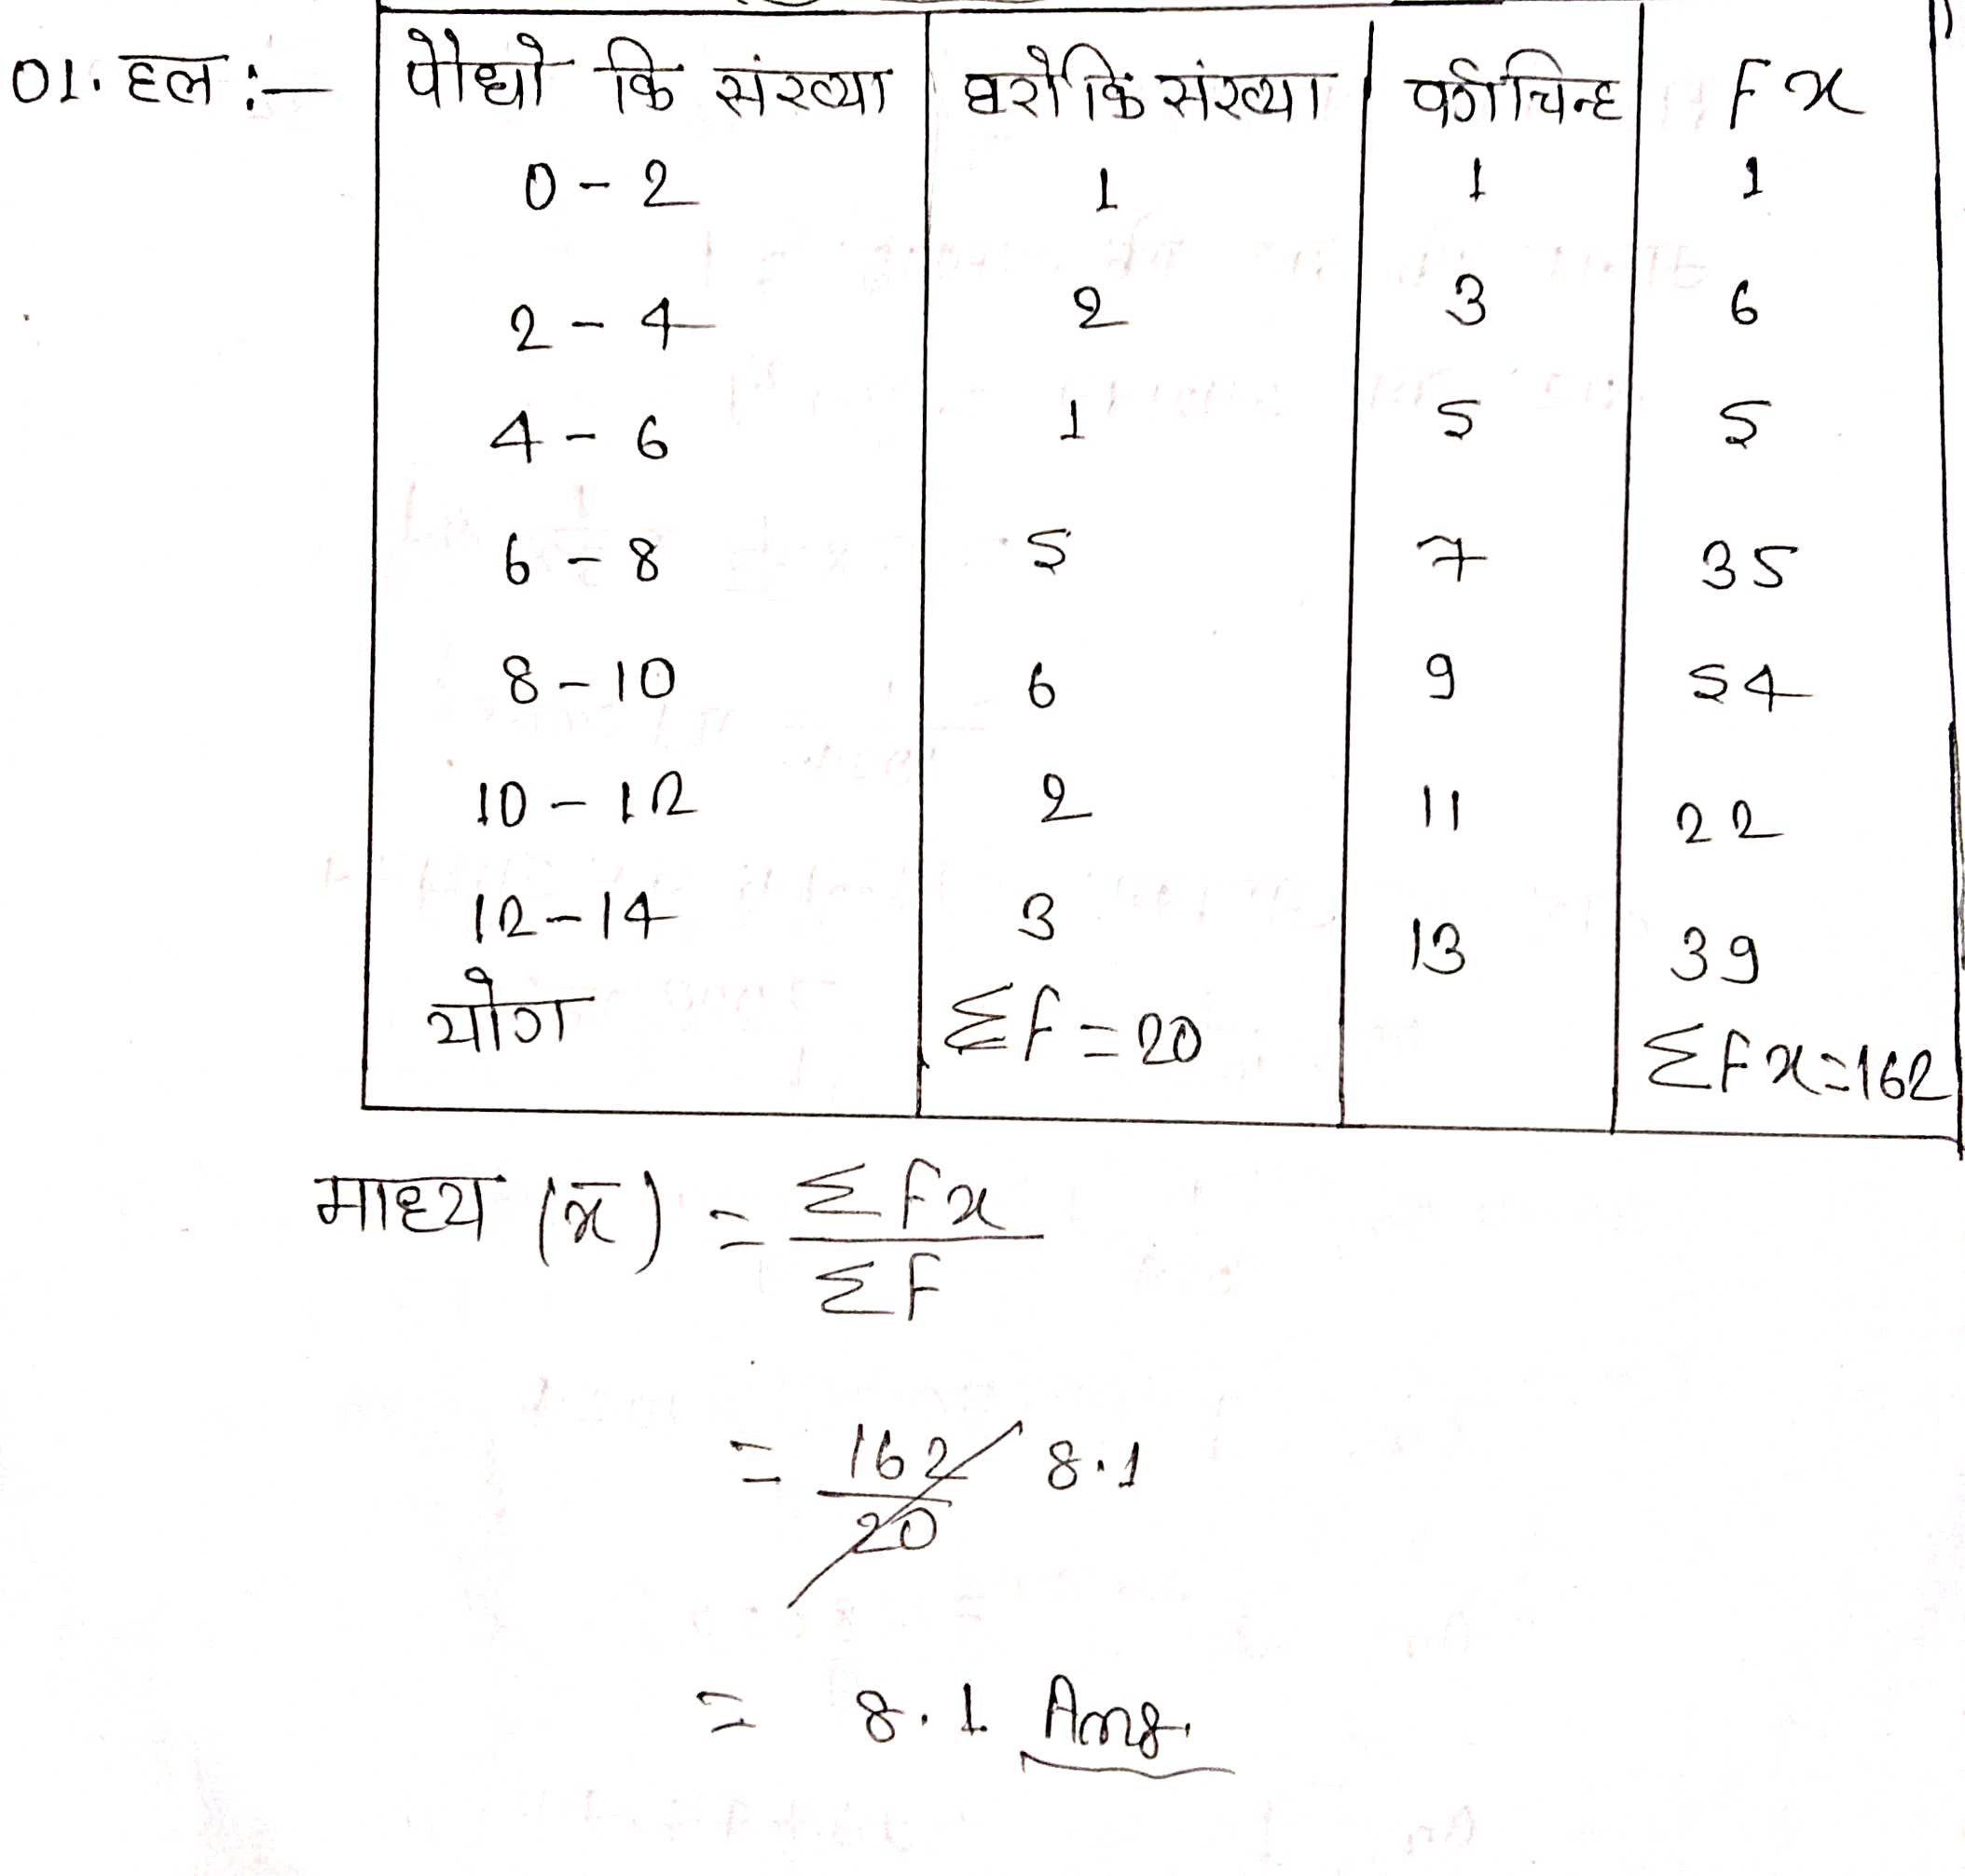 01. हल :-
पौधो कि संख्या घरो कि संख्या वर्ग चिन्ह fx
0 - 2 1 1 1
2 - 4 2 3 6
4 - 6 1 5 5
6 - 8 5 7 35
8 - 10 6 9 54
10 - 12 2 11 22
12 - 14 3 13 39
योग Σf = 20 Σfx = 162
माध्य (x̄) = Σfx / Σf
= 162 / 20 8.1
= 8.1 Ans.